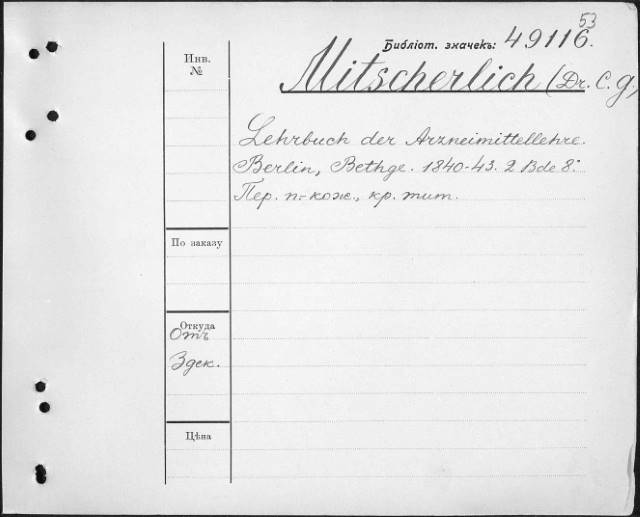 53
Библіот. значекъ: 49116.
Инв. №
Mitscherlich (Dr. C. G.)
Lehrbuch der Arzneimittellehre.
Berlin, Bethge. 1840-43. 2 Bde 8.°
Пер. п.-кож., кр. тит.
По заказу
Откуда
Отъ
Здек.
Цѣна